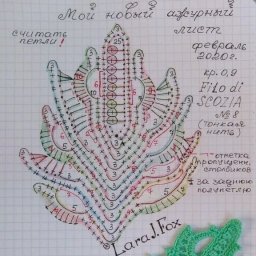 Мой новый ажурный
лист
считать
петли!
февраль
2020г.
кр. 0,9
Filo di
SCOZIA
№8
(тонкая
нить)
- отметка
пропущенн.
столбиков
за заднюю
полупетлю
Lara.Fox